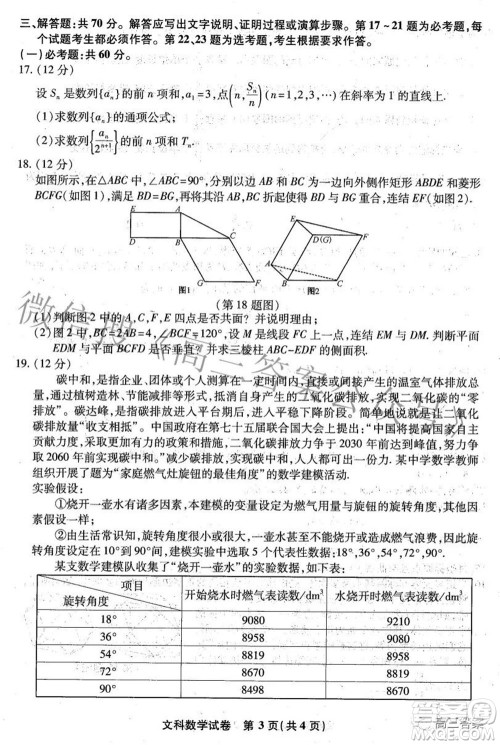 三、解答题:共70分。解答应写出文字说明、证明过程或演算步骤。第17~21题为必考题,每
个试题考生都必须作答。第22、23题为选考题,考生根据要求作答。
(一)必考题:共60分。
17.(12分)
设Sₙ是数列{aₙ}的前n项和,a₁=3,点(n, Sₙ/n)(n=1,2,3,…)在斜率为1的直线上.
(1)求数列{aₙ}的通项公式;
(2)求数列{aₙ/2ⁿ⁺¹}的前n项和Tₙ.
18.(12分)
如图所示,在△ABC中,∠ABC=90°,分别以边AB和BC向外侧作矩形ABDE和菱形
BCFG(如图1),再将其沿AB,BC折起使得BD与BG重合,连接EF(如图2).
E A
D B C
G F
图1
F
D(G)
E
C
A B
图2
(第18题图)
(1)判断图2中的A,C,F,E四点是否共面?并说明理由;
(2)图2中,AB=2,BC=BD=4,∠BCF=120°,设M是线段FC上一点,连接EM与DM.判断平面
EDM与平面BCFD是否垂直?并求三棱柱ABC-EDF的侧面积.
19.(12分)
碳中和,是指企业、团体或个人测算在一定时间内,直接或间接产生的温室气体排放总
量,通过植树造林、节能减排等形式,抵消自身产生的二氧化碳排放,实现二氧化碳的“零
排放”.碳达峰,是指碳排放进入平台期后,进入平稳下降阶段.简单地说就是让二氧化碳
排放量“收支相抵”.中国政府在第七十五届联合国大会上提出:“中国将提高国家自主
贡献力度,采取更加有力的政策和措施,二氧化碳排放力争于2030年前达到峰值,努力争
取2060年前实现碳中和.”减少碳排放,实现碳中和,人人都可出一份力.某中学数学教师
组织开展了题为“家庭燃气灶旋钮的最佳角度”的数学建模活动.
实验假设:
①烧开一壶水有诸多因素,本建模的变量设定为燃气用量与旋钮的旋转角度,其他因
素假设一样;
②由生活常识知,旋转角度很小或很大,一壶水甚至不能烧开或造成燃气浪费,因此旋
转角度设定在10°到90°间,建模实验中选取5个代表性数据:18°,36°,54°,72°,90°.
某支数学建模队收集了“烧开一壶水”的实验数据,如下表:
项目 旋转角度 开始烧水时燃气表读数/dm³ 水烧开时燃气表读数/dm³
18° 9080 9210
36° 8958 9080
54° 8819 8958
72° 8670 8819
90° 8498 8670
文科数学试卷 第3页(共4页)
高三答案